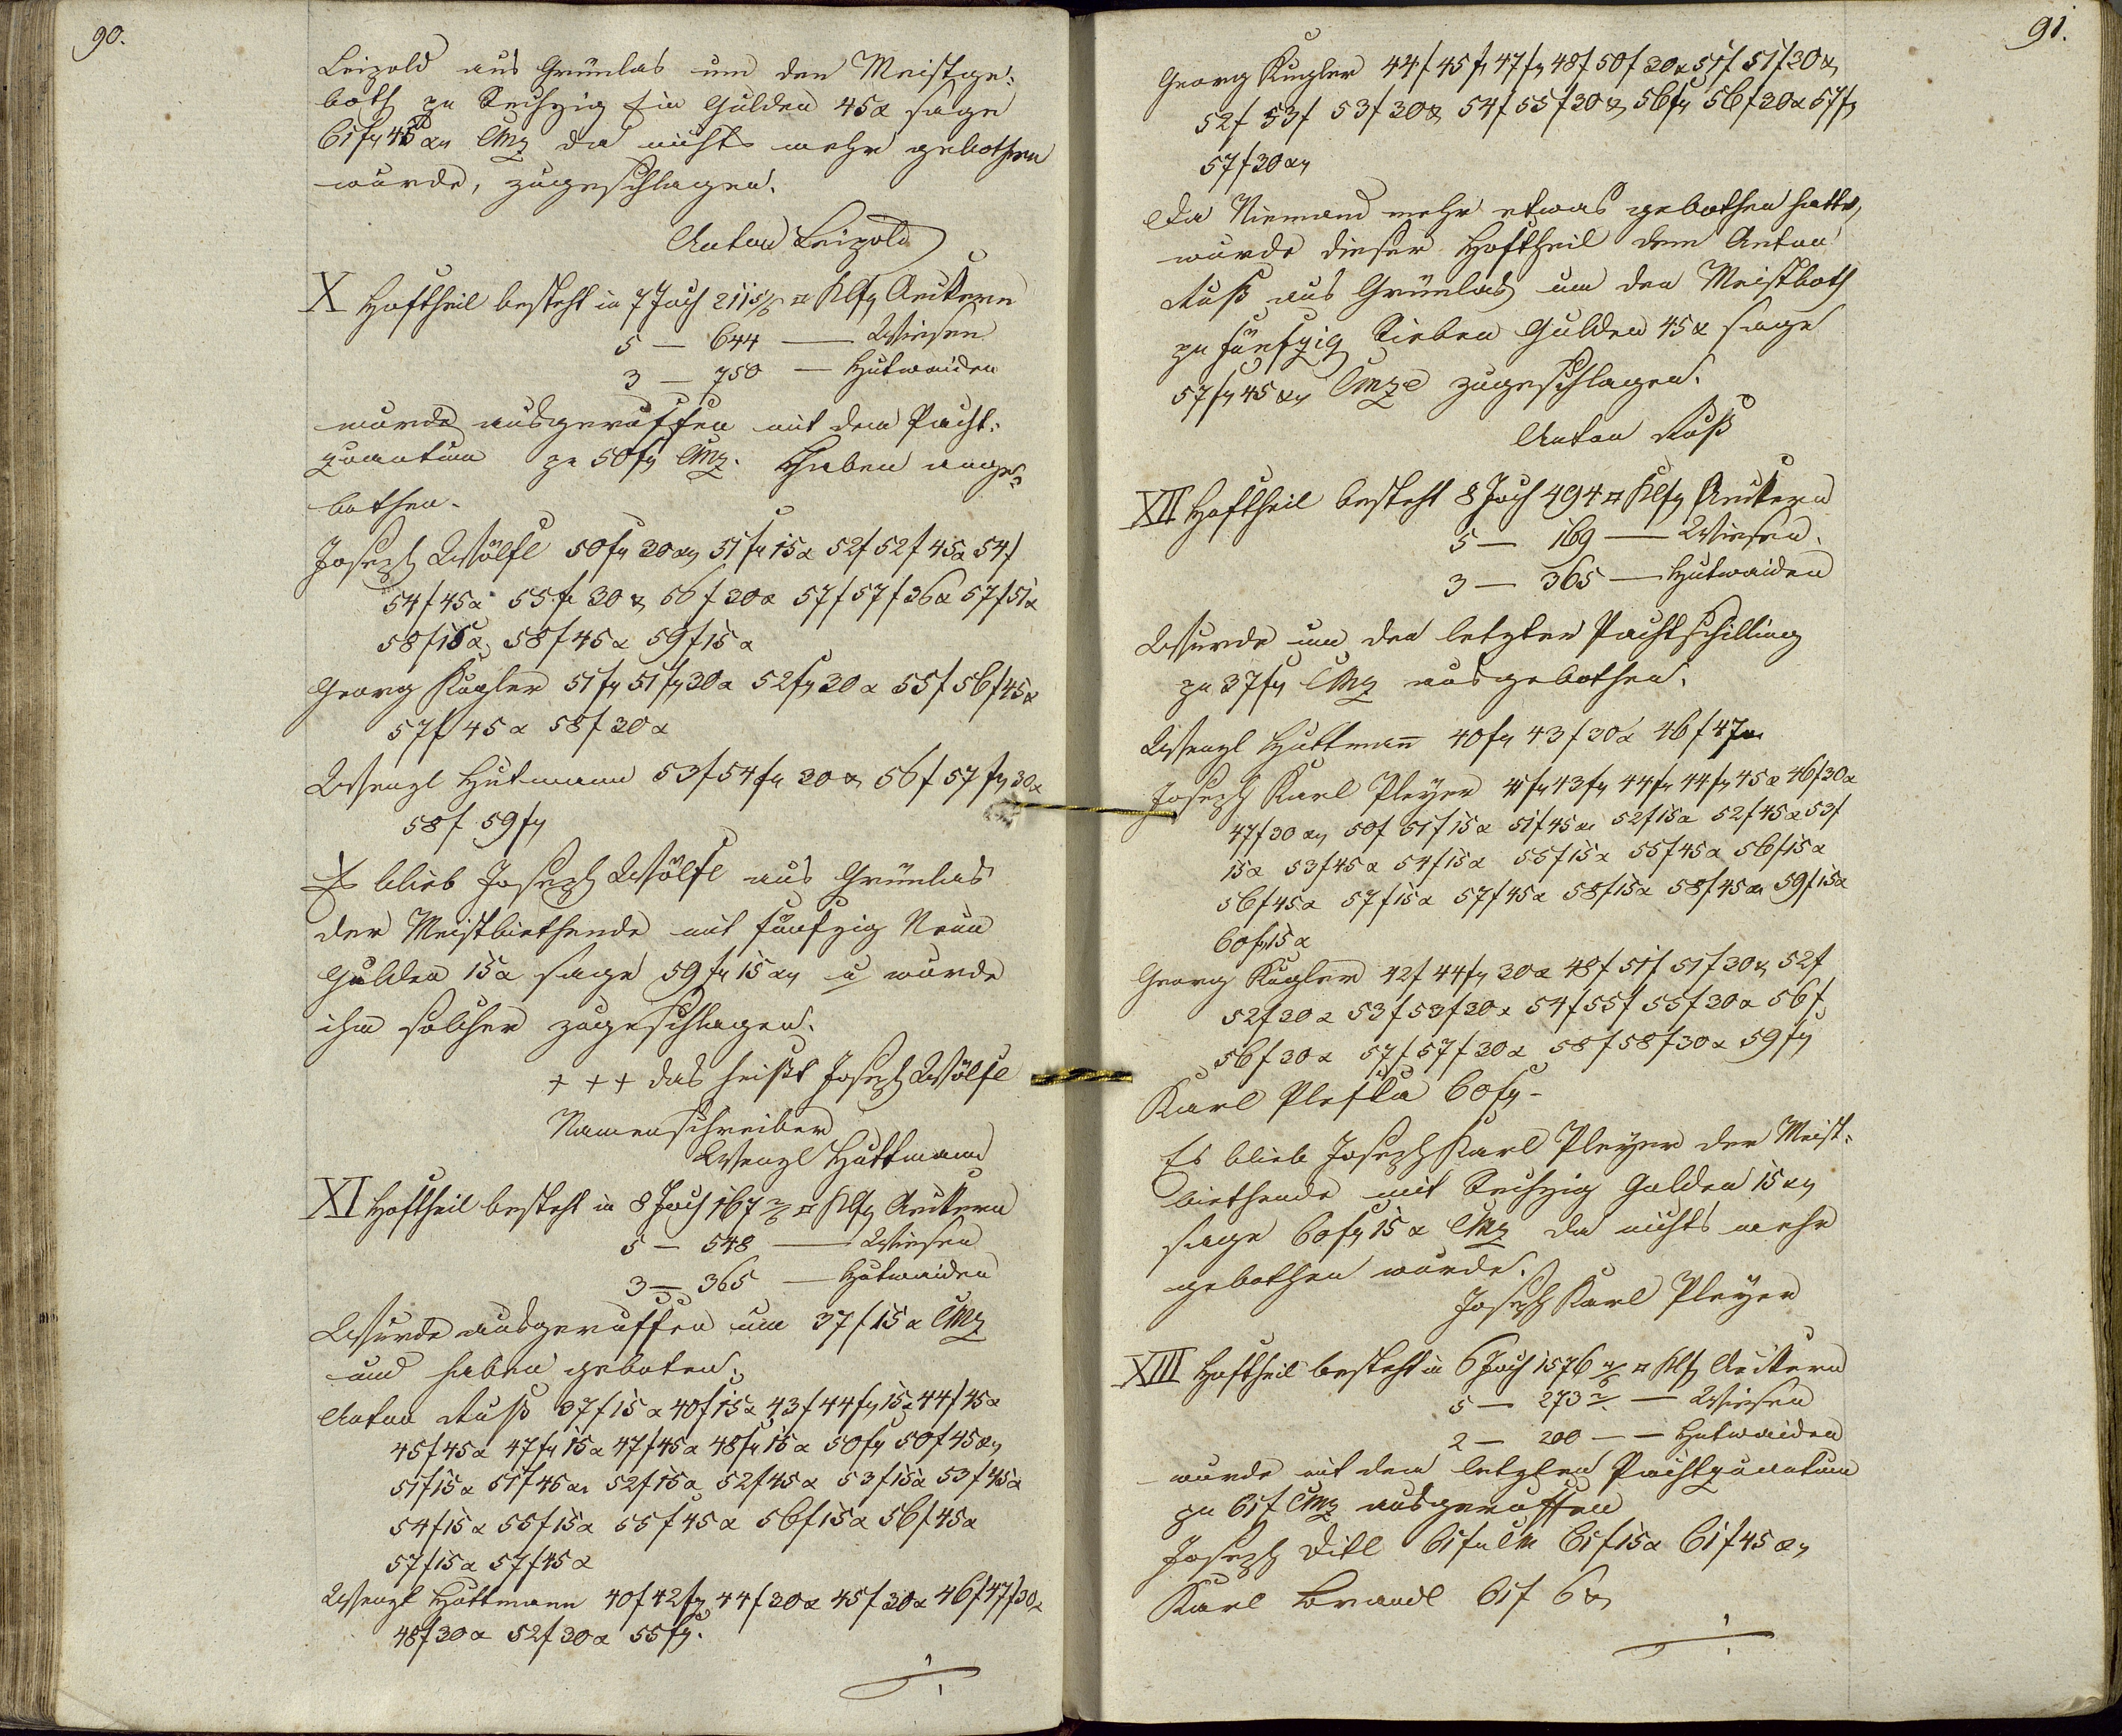 90.
Leizold aus Grünlas um den Meistge-
both zu Sechzig Ein Gulden 45 x sage
61 f 45 x CMz da nichts mehr gebothen
wurde, zugeschlagen.
Anton Leizold
X Hoftheil besteht in 7 Joch 211 5/6 □ Klft Aeckern
5 — 644 — Wiesen
3 — 750 — Hutwaiden
wurde ausgeruffen mit dem Pacht-
quantum zu 50 f CMz. Haben ange-
bothen.
Joseph Wölfl 50 f 30 x 51 f 15 x 52 f 52 f 45 x 54 f
54 f 45 x 55 f 30 x 56 f 30 x 57 f 57 f 36 x 57 f 51 x
58 f 15 x 58 f 45 x 59 f 15 x
Georg Kugler 51 f 51 f 30 x 52 f 30 x 55 f 56 f 45 x
57 f 45 x 58 f 30 x
Wenzl Hutmann 53 f 54 f 30 x 56 f 57 f 30 x
58 f 59 f
Es blieb Joseph Wölfl aus Grünlas
der Meistbiethende mit fünfzig Neun
Gulden 15 x sage 59 f 15 x u wurde
ihm solcher zugeschlagen.
+ + + das heißt Joseph Wölfl
Namenschreiber
Wenzl Huttmann
XI Hoftheil besteht in 8 Joch 167 2/6 □ Klft Aeckern
5 — 548 — Wiesen
3 — 365 — Hutwaiden
Wurde ausgeruffen um 37 f 15 x CMz
und haben geboten.
Anton Ruß 37 f 15 x 40 f 15 x 43 f 44 f 15 x 44 f 45 x
45 f 45 x 47 f 15 x 47 f 45 x 48 f 15 x 50 f 50 f 45 x
51 f 15 x 51 f 45 x 52 f 15 x 52 f 45 x 53 f 15 x 53 f 45 x
54 f 15 x 55 f 15 x 55 f 45 x 56 f 15 x 56 f 45 x
57 f 15 x 57 f 45 x
Wenzl Huttmann 40 f 42 f 44 f 30 x 45 f 30 x 46 f 47 f 30 x
48 f 30 x 52 f 30 x 55 f.
91.
Georg Kugler 44 f 45 f 47 f 48 f 50 f 30 x 51 f 51 f 30 x
52 f 53 f 53 f 30 x 54 f 55 f 30 x 56 f 56 f 30 x 57 f
57 f 30 x
Da Niemand mehr etwas gebothen hatte,
wurde dieser Hoftheil dem Anton
Ruß aus Grünlas um den Meistboth
zu fünfzig Sieben Gulden 45 x sage
57 f 45 x CMze zugeschlagen.
Anton Ruß
XII Hoftheil besteht 8 Joch 494 □ Klft Aeckern
5 — 169 — Wiesen.
3 — 365 — Hutwaiden
Wurde um den letzten Pachtschilling
zu 37 f CMz ausgebothen.
Wenzl Huttmann 40 f 43 f 30 x 46 f 47
Joseph Karl Pleyer 41 f 43 f 44 f 44 f 45 x 46 f 30 x
47 f 30 x 50 f 51 f 15 x 51 f 45 x 52 f 15 x 52 f 45 x 53 f
15 x 53 f 45 x 54 f 15 x 55 f 15 x 55 f 45 x 56 f 15 x
56 f 45 x 57 f 15 x 57 f 45 x 58 f 15 x 58 f 45 x 59 f 15 x
60 f 15 x
Georg Kugler 42 f 44 f 30 x 48 f 51 f 51 f 30 x 52 f
52 f 30 x 53 f 53 f 30 x 54 f 55 f 55 f 30 x 56 f
56 f 30 x 57 f 57 f 30 x 58 f 58 f 30 x 59 f
Karl 60 f -
Es blieb Joseph Karl Pleyer der Meist-
biethende mit Sechzig Gulden 15 x
sage 60 f 15 x CMz da nichts mehr
gebothen wurde.
Joseph Karl Pleyer
XIII Hoftheil besteht in 6 Joch 1576 4/6 □ Klft Aeckern
5 — 273 — Wiesen
2 — 200 — — Hutwaiden
wurde mit dem letzten Pachtquantum
zu 61 f CMz ausgeruffen
Joseph Diel 61 f CM 61 f 15 x 61 f 45 x
Karl Brandl 61 f 6 x